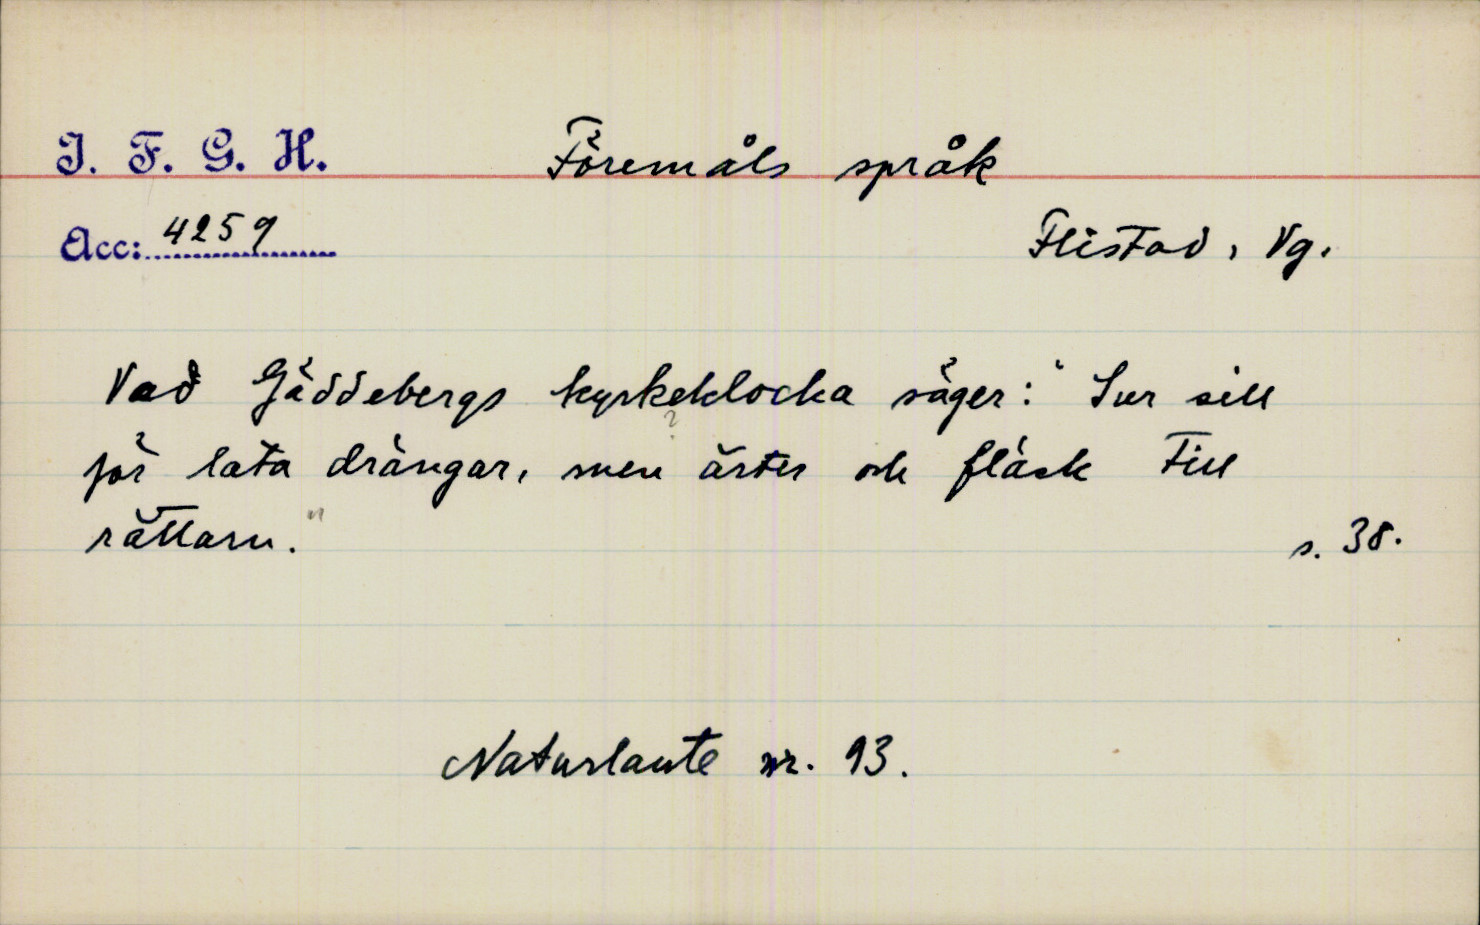 I. F. G. H.
Föremåls språk
Acc: 4259
Flistad, Vg.
Vad Gäddebergs kyrkeklocka säger: "Sur sill
?
för lata drängar, men ärter och fläsk till
rättarn."
s. 38.
Naturlaute nr. 93.